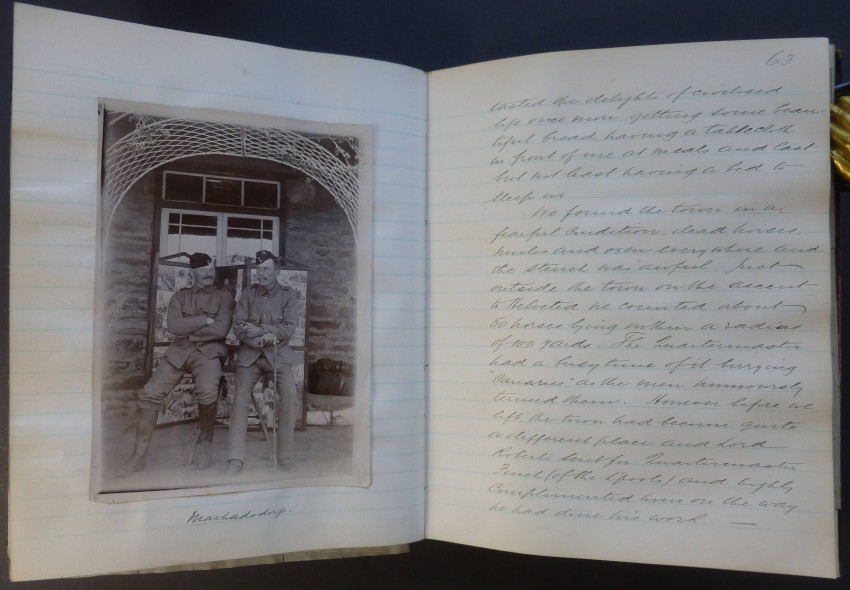 Machadodorp.
63
tasted the delights of civilised
life once more getting some beau-
tiful bread having a tablecloth
in front of me at meals and last
but not least having a bed to
sleep in.
We found the town in a
fearful condition, dead horses,
mules and oxen everywhere and
the stench was awful. Just
outside the town on the ascent
to Helvetia we counted about
60 horses lying within a radius
of 100 yards. The Quartermaster
had a busy time of it burying
"Canaries" as the men humorously
termed them. However before we
left the town had become quite
a different place and Lord
Roberts sent for Quartermaster
Finch (of the Sports) and highly
Complimented him on the way
he had done his work —